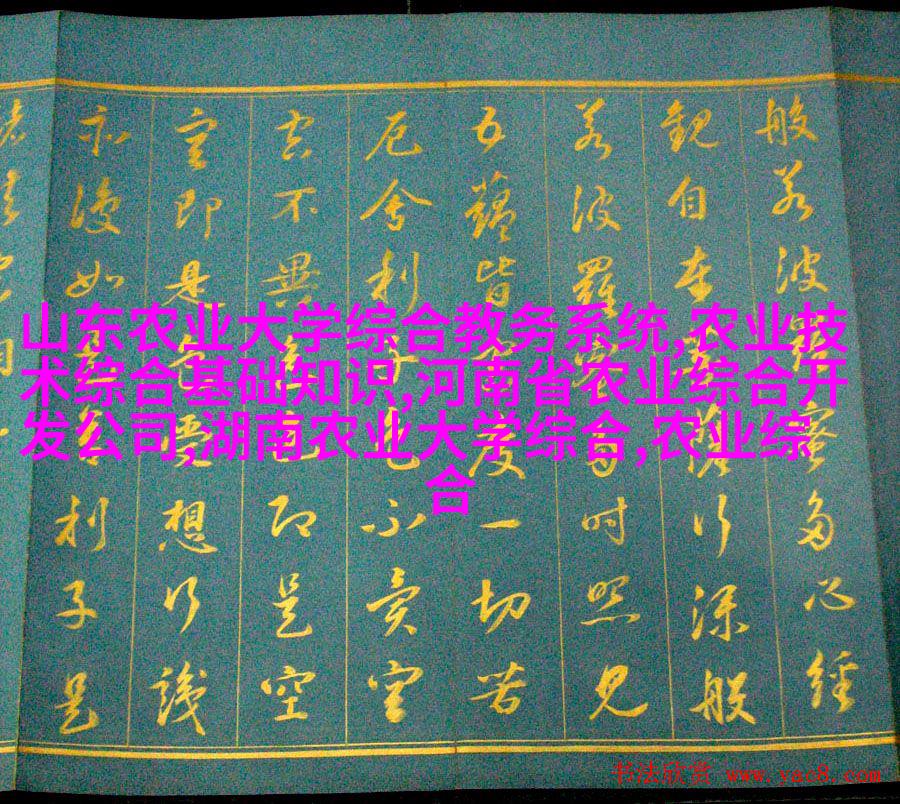 般若波羅蜜多心經
觀自在菩薩行深般
若波羅蜜多時照見
五蘊皆空度一切苦
厄舍利子色不異空
空不異色色即是空
空即是色受想行識
亦復如是舍利子是
山东农业大学综合教务系统,农业技
术综合基础知识,河南省农业综合开
发公司,湖南农业大学综合,农业综
合
书法欣赏 www.yac8.com